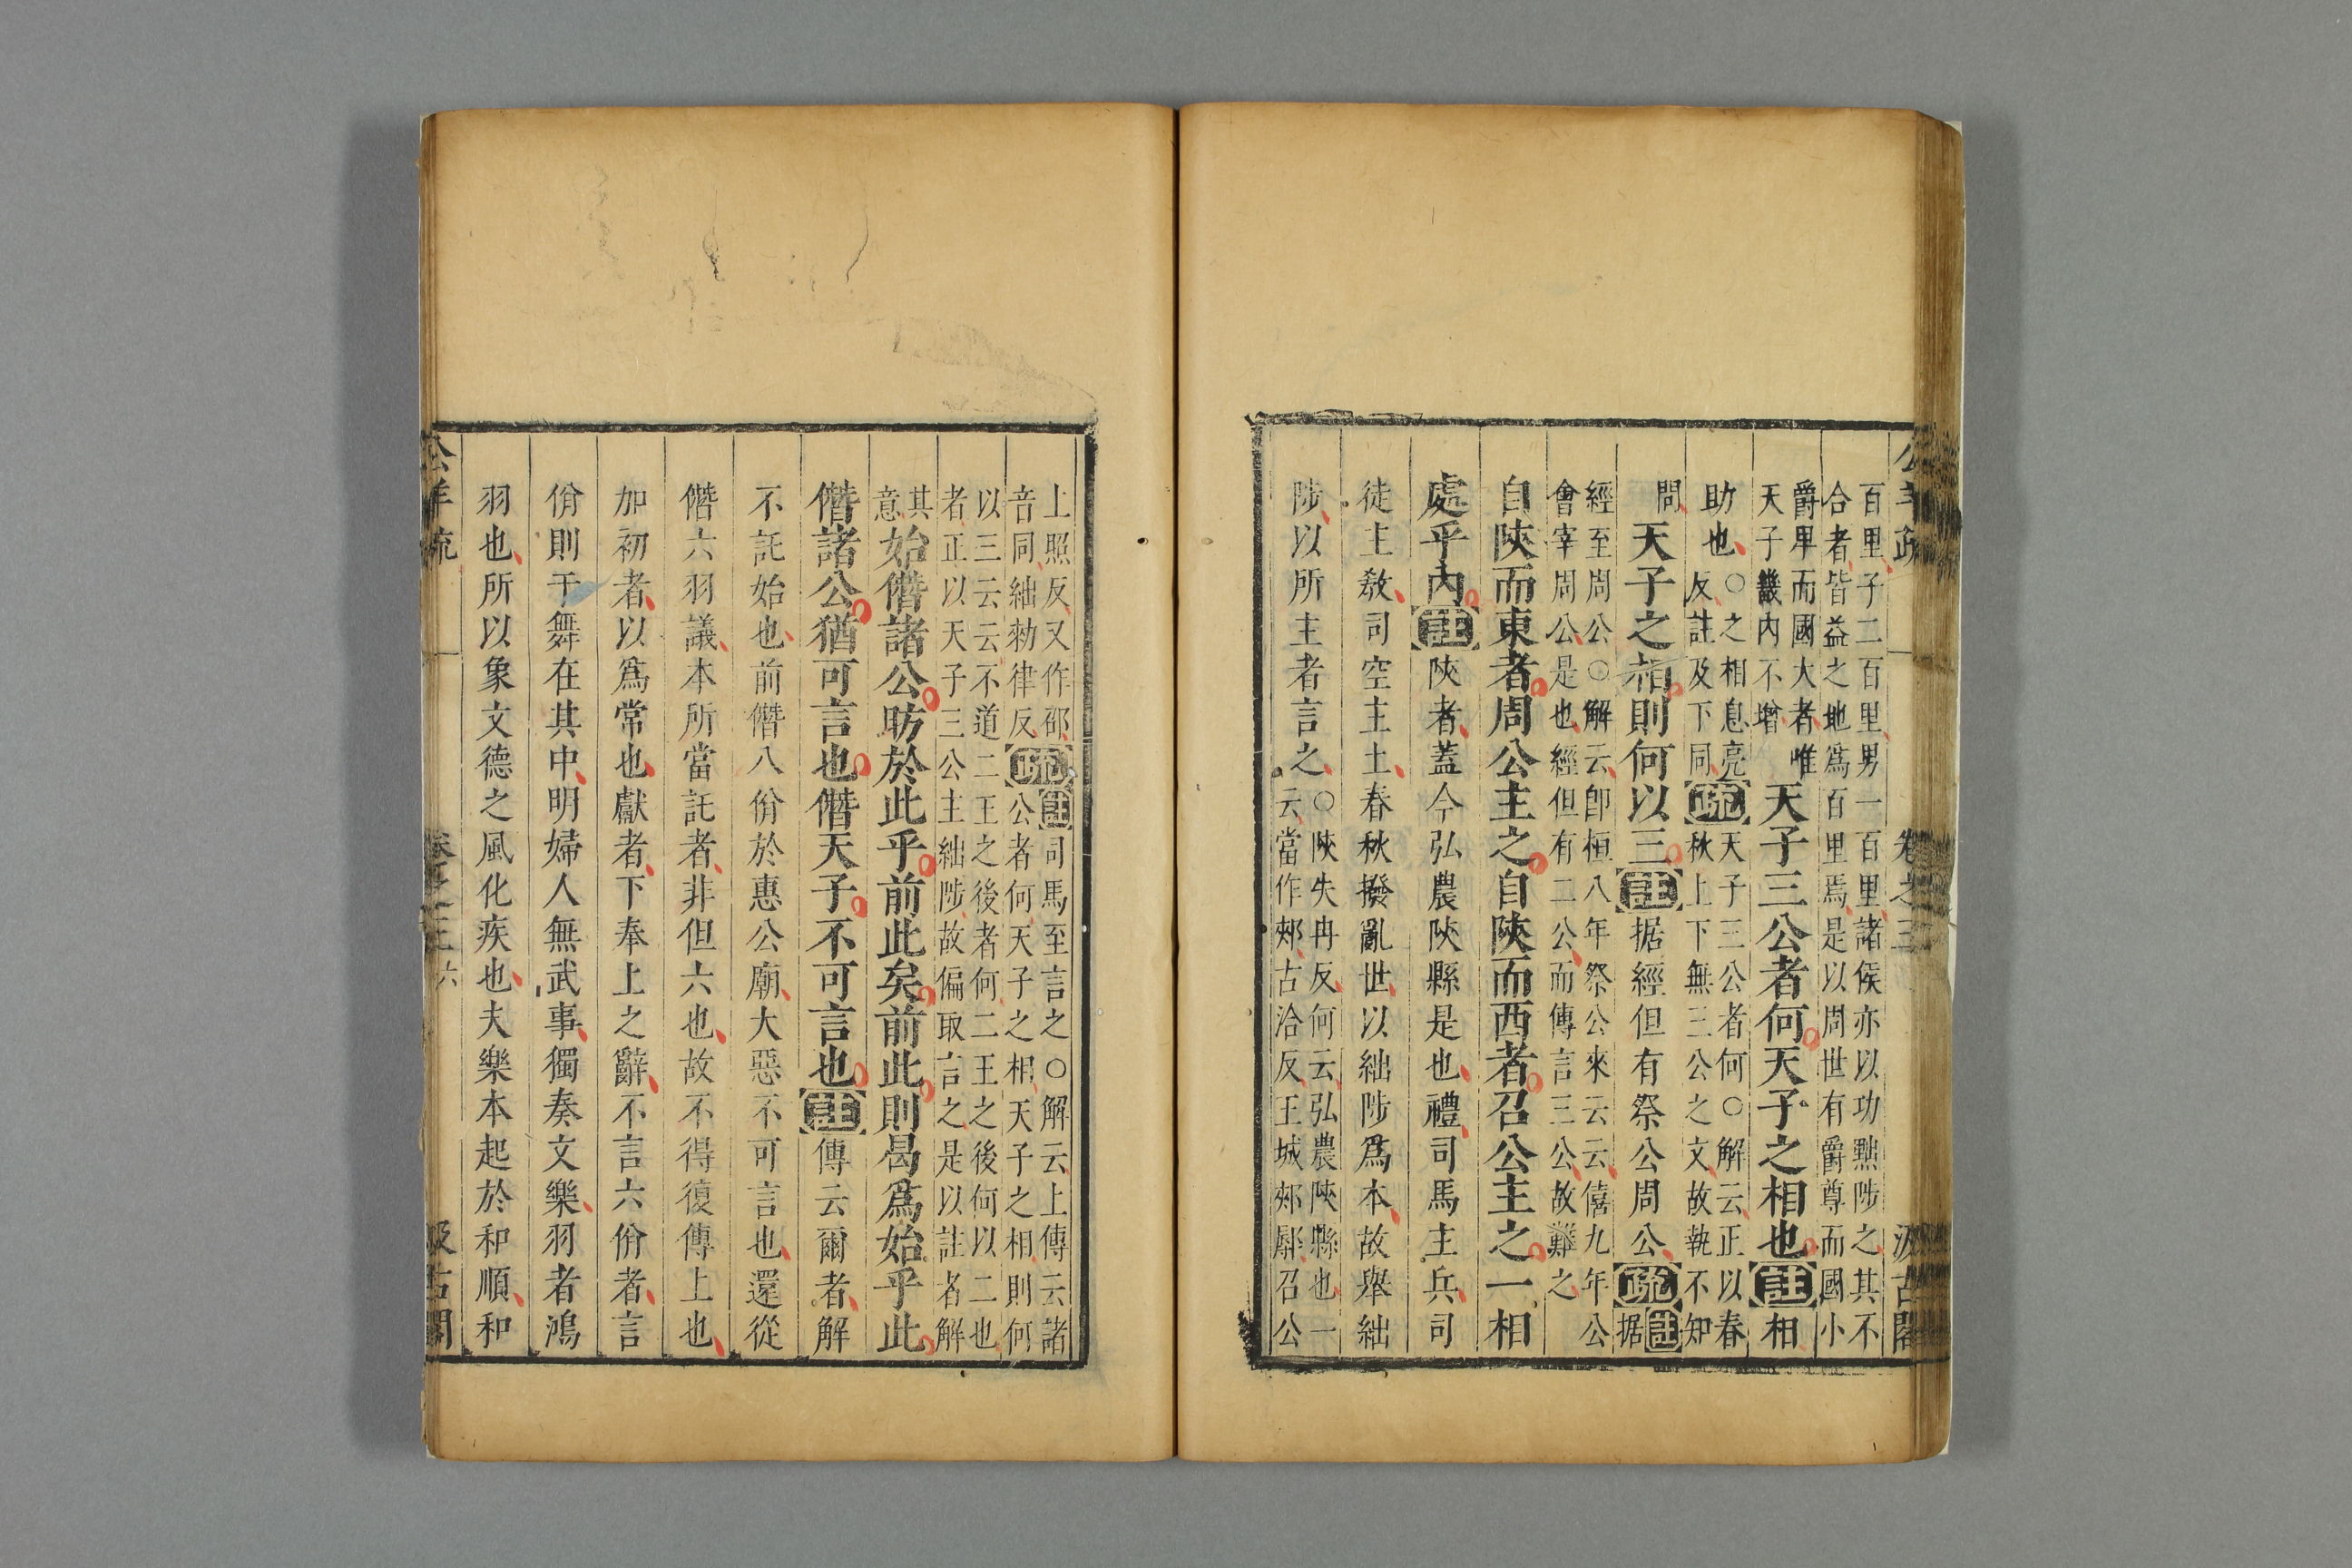 公羊疏 卷之三 汲古閣
百里子二百里男一百里諸侯亦以功黜陟之其不
合者皆益之地爲百里焉是以周世有爵尊而國小
爵卑而國大者惟
天子畿內不增
天子三公者何天子之相也註相
助也
○之相息亮
反註及下同
疏
天子三公者何○解云正以春
秋上下無三公之文故執不知
問
天子之相則何以三註据經但有祭公周公疏
註据
經至周公○解云卽桓八年祭公來云云僖九年公
會宰周公是也經但有二公而傳言三公故難之
自陝而東者周公主之自陝而西者召公主之一相
處乎內註陝者蓋今弘農陝縣是也禮司馬主兵司
徒主敎司空主土春秋撥亂世以絀陟爲本故舉絀
陟以所主者言之
○陝失冉反何云弘農陝縣也一
云當作郟古洽反王城郟鄏召公
上照反又作邵
音同絀勑律反
疏
註司馬至言之○解云上傳云諸
公者何天子之相天子之相則何
以三云云不道二王之後者何二王之後何以二也
者正以天子三公主絀陟故偏取言之是以註者解
其
意
始僭諸公昉於此乎前此矣前此則曷爲始乎此
僭諸公猶可言也僭天子不可言也註傳云爾者解
不託始也前僭八佾於惠公廟大惡不可言也還從
僭六羽議本所當託者非但六也故不得復傳上也
加初者以爲常也獻者下奉上之辭不言六佾者言
佾則干舞在其中明婦人無武事獨奏文樂羽者鴻
羽也所以象文德之風化疾也夫樂本起於和順和
公羊疏 卷之三 六 汲古閣